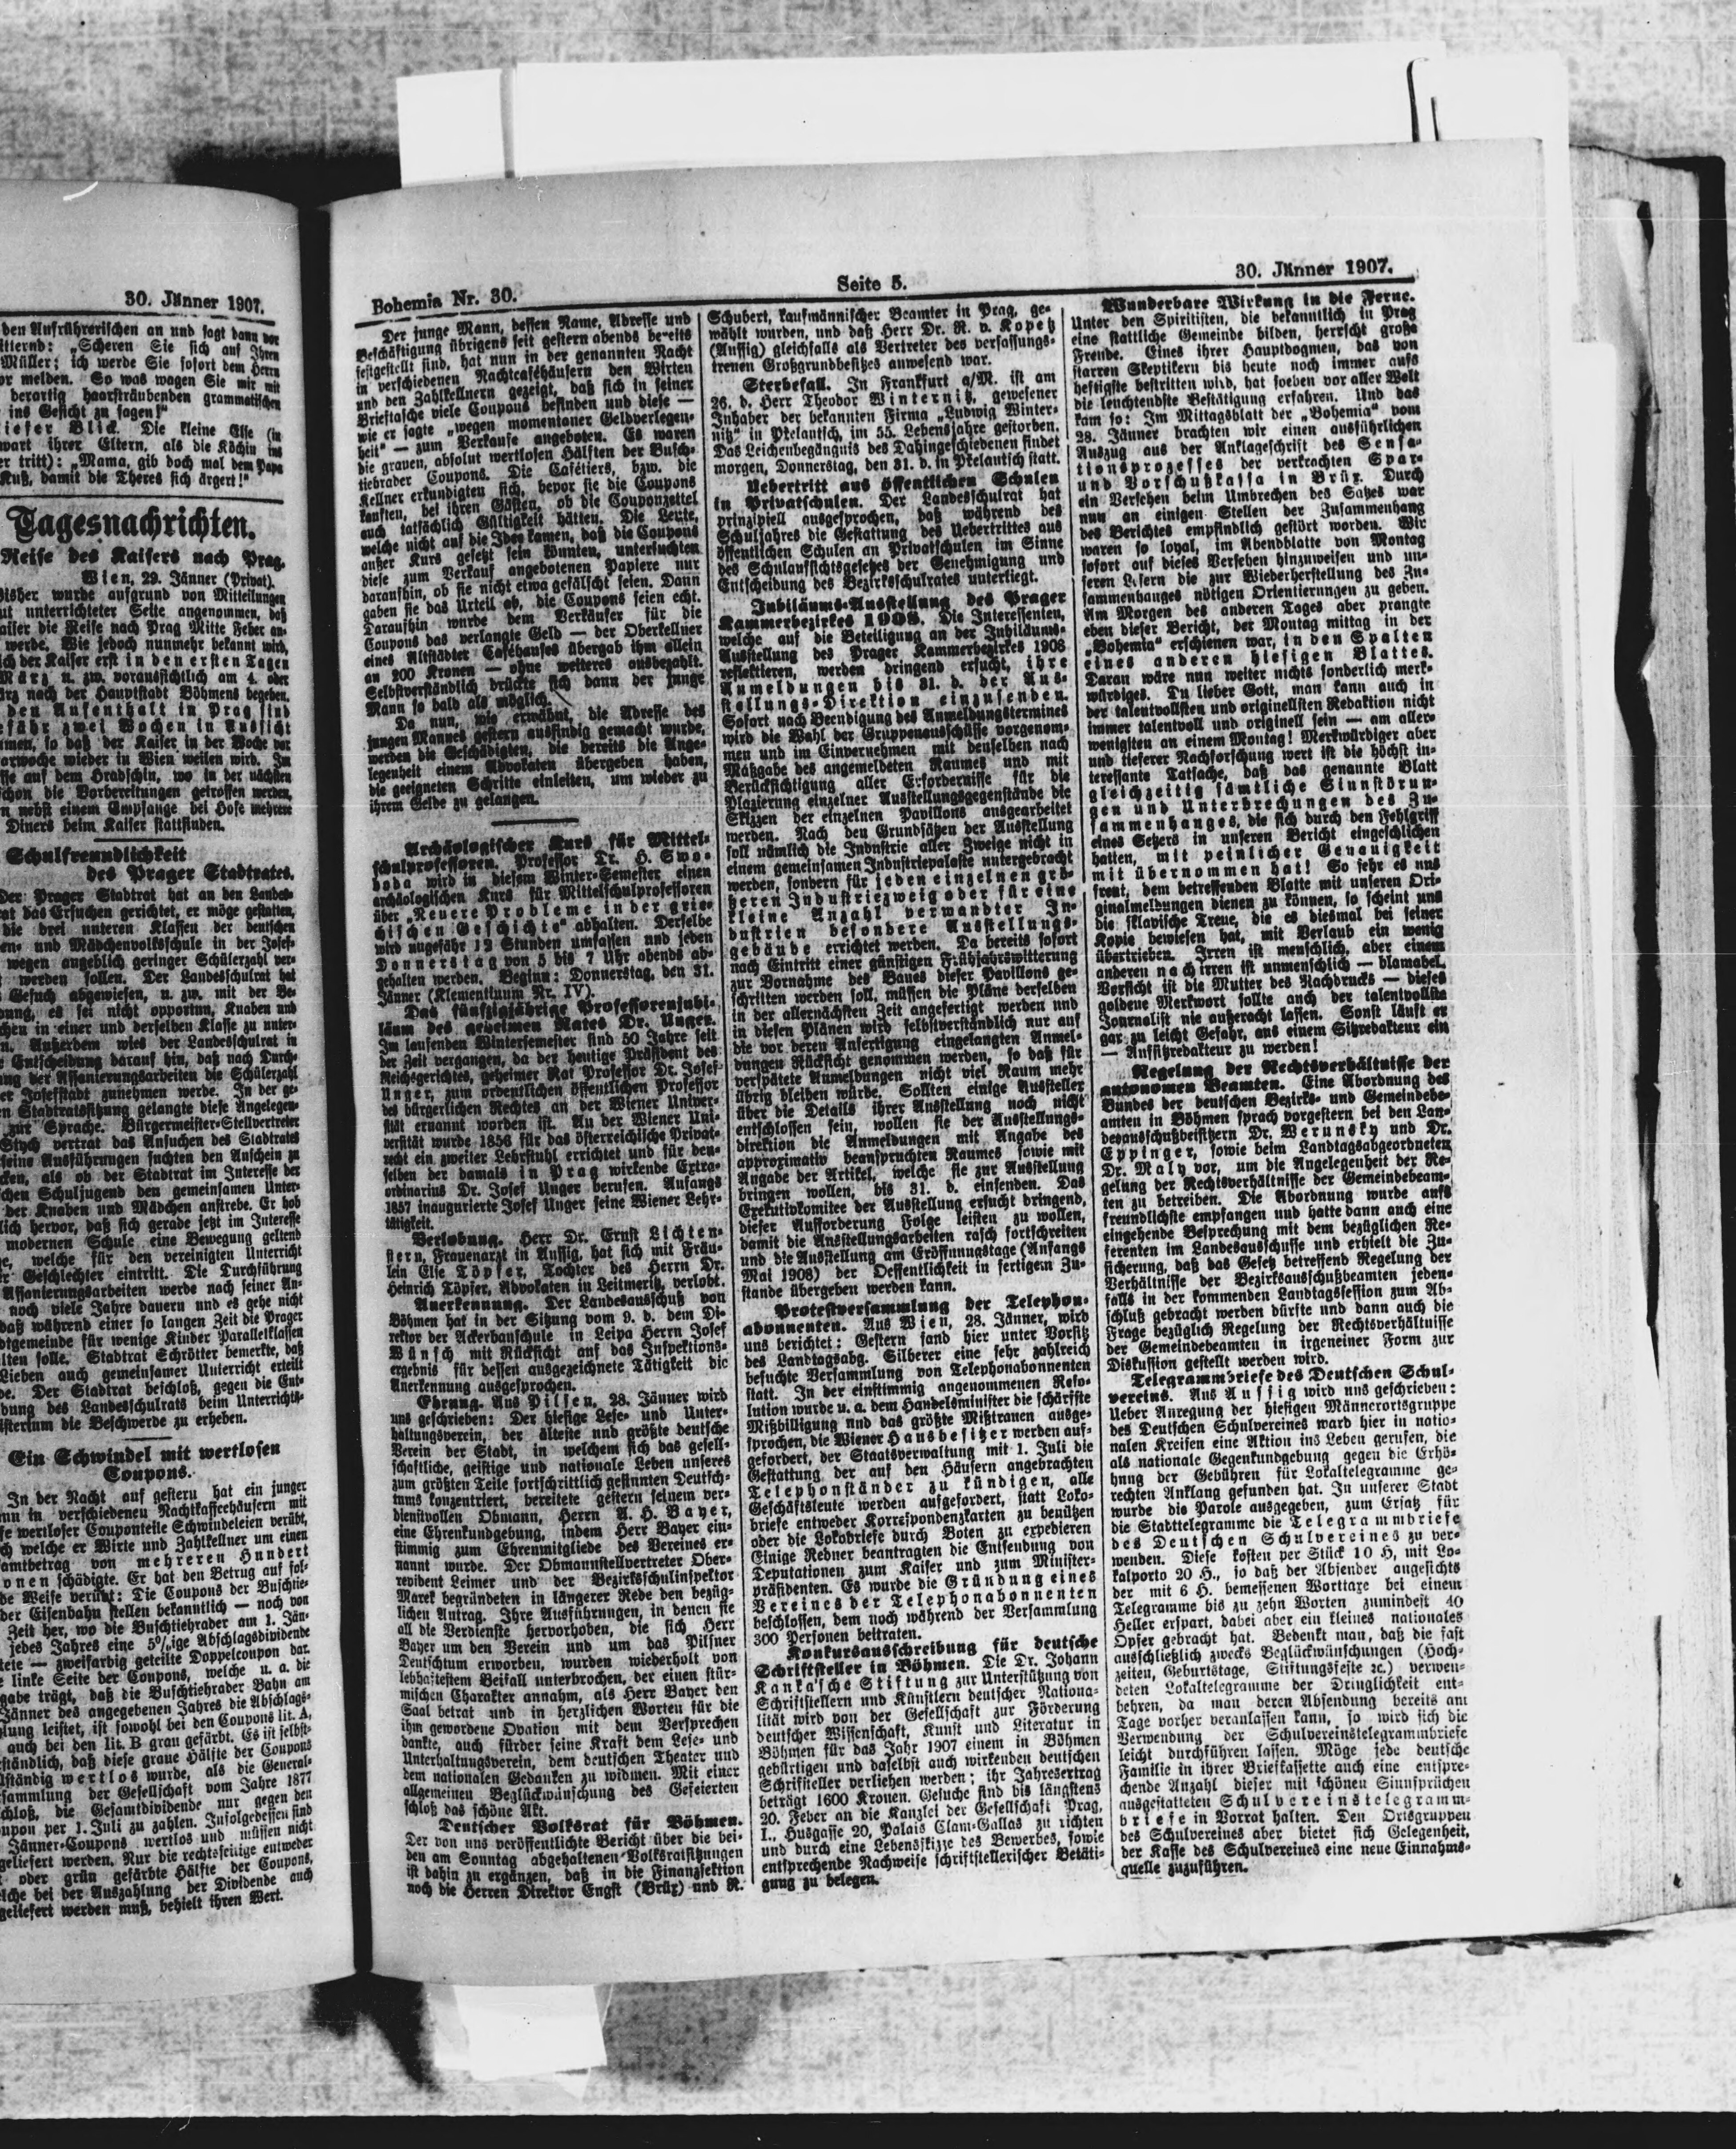 30. Jänner 1907.
den Aufrührerischen an und sagt dann vor
„Scheren Sie sich auf Ihren
Müller; ich werde Sie sofort dem Herrn
melden. So was wagen Sie mir mit
derartig haarsträubenden grammatischen
ins Gesicht zu sagen!“
Blick. Die kleine Else (in
ihrer Eltern, als die Köchin ins
tritt): „Mama, gib doch mal dem Papa
Kuß, damit die Theres sich ärgert!“
Tagesnachrichten.
Reise des Kaisers nach Prag.
Wien, 29. Jänner (Privat).
wurde aufgrund von Mitteilungen
unterrichteter Seite angenommen, daß
die Reise nach Prag Mitte Feber an-
werde. Wie jedoch nunmehr bekannt wird,
der Kaiser erst in den ersten Tagen
März u. zw. voraussichtlich am 4. oder
nach der Hauptstadt Böhmens begeben.
den Aufenthalt in Prag sind
zwei Wochen in Aussicht
so daß der Kaiser in der Woche vor
wieder in Wien weilen wird. Im
auf dem Hradschin, wo in der nächsten
schon die Vorbereitungen getroffen werden,
nebst einem Empfange bei Hofe mehrere
Diners beim Kaiser stattfinden.
Schulfreundlichkeit
des Prager Stadtrates.
Der Prager Stadtrat hat an den Landes-
das Ersuchen gerichtet, er möge gestatten,
die drei unteren Klassen der deutschen
und Mädchenvolksschule in der Josef-
wegen angeblich geringer Schülerzahl ver-
werden sollen. Der Landesschulrat hat
Gesuch abgewiesen, u. zw. mit der Be-
es sei nicht opportun, Knaben und
in einer und derselben Klasse zu unter-
Außerdem wies der Landesschulrat in
Entscheidung darauf hin, daß nach Durch-
der Assanierungsarbeiten die Schülerzahl
Josefsstadt zunehmen werde. In der ge-
Stadtratssitzung gelangte diese Angelegen-
zur Sprache. Bürgermeister-Stellvertreter
Stych vertrat das Ansuchen des Stadtrates
seine Ausführungen suchten den Anschein zu
als ob der Stadtrat im Interesse der
Schuljugend den gemeinsamen Unter-
der Knaben und Mädchen anstrebe. Er hob
hervor, daß sich gerade jetzt im Interesse
modernen Schule eine Bewegung geltend
welche für den vereinigten Unterricht
Geschlechter eintritt. Die Durchführung
Assanierungsarbeiten werde nach seiner An-
noch viele Jahre dauern und es gehe nicht
daß während einer so langen Zeit die Prager
für wenige Kinder Parallelklassen
solle. Stadtrat Schrötter bemerkte, daß
Lieben auch gemeinsamer Unterricht erteilt
Der Stadtrat beschloß, gegen die Ent-
des Landesschulrats beim Unterrichts-
die Beschwerde zu erheben.
Ein Schwindel mit wertlosen
Coupons.
In der Nacht auf gestern hat ein junger
in verschiedenen Nachtkaffeehäusern mit
wertloser Couponteile Schwindeleien verübt,
welche er Wirte und Zahlkellner um einen
von mehreren Hundert
schädigte. Er hat den Betrug auf fol-
Weise verübt: Die Coupons der Buschtie-
Eisenbahn stellen bekanntlich — noch von
Zeit her, wo die Buschtiehrader am 1. Jän-
jedes Jahres eine 5%ige Abschlagsdividende
— zweifarbig geteilte Doppelcoupon dar.
linke Seite der Coupons, welche u. a. die
trägt, daß die Buschtiehrader Bahn am
Jänner des angegebenen Jahres die Abschlags-
leistet, ist sowohl bei den Coupons lit. A,
auch bei den lit. B grau gefärbt. Es ist selbst-
daß diese graue Hälfte der Coupons
wertlos wurde, als die General-
der Gesellschaft vom Jahre 1877
die Gesamtdividende nur gegen den
per 1. Juli zu zahlen. Infolgedessen sind
Jänner-Coupons wertlos und müssen nicht
geliefert werden. Nur die rechtsseitige entweder
oder grün gefärbte Hälfte der Coupons,
bei der Auszahlung der Dividende auch
geliefert werden muß, behielt ihren Wert.
Bohemia Nr. 30.
Seite 5.
30. Jänner 1907.
Der junge Mann, dessen Name, Adresse und
Beschäftigung übrigens seit gestern abends bereits
festgestellt sind, hat nun in der genannten Nacht
in verschiedenen Nachtcaféhäusern den Wirten
und den Zahlkellnern gezeigt, daß sich in seiner
Brieftasche viele Coupons befinden und diese —
wie er sagte „wegen momentaner Geldverlegen-
heit“ — zum Verkaufe angeboten. Es waren
die grauen, absolut wertlosen Hälften der Busch-
tiehrader Coupons. Die Cafétiers, bzw. die
Kellner erkundigten sich, bevor sie die Coupons
kauften, bei ihren Gästen, ob die Couponzettel
auch tatsächlich Gültigkeit hätten. Die Leute,
welche nicht auf die Idee kamen, daß die Coupons
außer Kurs gesetzt sein könnten, untersuchten
diese zum Verkauf angebotenen Papiere nur
daraufhin, ob sie nicht etwa gefälscht seien. Dann
gaben sie das Urteil ab, die Coupons seien echt.
Daraufhin wurde dem Verkäufer für die
Coupons das verlangte Geld — der Oberkellner
eines Altstädter Caféhauses übergab ihm allein
an 200 Kronen — ohne weiteres ausbezahlt.
Selbstverständlich drückte sich dann der junge
Mann so bald als möglich.
Da nun, wie erwähnt, die Adresse des
jungen Mannes gestern ausfindig gemacht wurde,
werden die Geschädigten, die bereits die Ange-
legenheit einem Advokaten übergeben haben,
die geeigneten Schritte einleiten, um wieder zu
ihrem Gelde zu gelangen.
Archäologischer Kurs für Mittel-
schulprofessoren. Professor Dr. H. Swo-
boda wird in diesem Winter-Semester einen
archäologischen Kurs für Mittelschulprofessoren
über „Neuere Probleme in der grie-
chischen Geschichte“ abhalten. Derselbe
wird ungefähr 12 Stunden umfassen und jeden
Donnerstag von 5 bis 7 Uhr abends ab-
gehalten werden. Beginn: Donnerstag, den 31.
Jänner (Klementinum Nr. IV).
Das fünfzigjährige Professorenjubi-
läum des geheimen Rates Dr. Unger.
Im laufenden Wintersemester sind 50 Jahre seit
der Zeit vergangen, da der heutige Präsident des
Reichsgerichtes, geheimer Rat Professor Dr. Josef
Unger, zum ordentlichen öffentlichen Professor
des bürgerlichen Rechtes an der Wiener Univer-
sität ernannt worden ist. An der Wiener Uni-
versität wurde 1856 für das österreichische Privat-
recht ein zweiter Lehrstuhl errichtet und für den-
selben der damals in Prag wirkende Extra-
ordinarius Dr. Josef Unger berufen. Anfangs
1857 inaugurierte Josef Unger seine Wiener Lehr-
tätigkeit.
Verlobung. Herr Dr. Ernst Lichten-
stern, Frauenarzt in Aussig, hat sich mit Fräu-
lein Else Töpfer, Tochter des Herrn Dr.
Heinrich Töpfer, Advokaten in Leitmeritz, verlobt.
Anerkennung. Der Landesausschuß von
Böhmen hat in der Sitzung vom 9. d. dem Di-
rektor der Ackerbauschule in Leipa Herrn Josef
Wünsch mit Rücksicht auf das Inspektions-
ergebnis für dessen ausgezeichnete Tätigkeit die
Anerkennung ausgesprochen.
Ehrung. Aus Pilsen, 28. Jänner wird
uns geschrieben: Der hiesige Lese- und Unter-
haltungsverein, der älteste und größte deutsche
Verein der Stadt, in welchem sich das gesell-
schaftliche, geistige und nationale Leben unseres
zum größten Teile fortschrittlich gesinnten Deutsch-
tums konzentriert, bereitete gestern seinem ver-
dienstvollen Obmann, Herrn A. H. Bayer,
eine Ehrenkundgebung, indem Herr Bayer ein-
stimmig zum Ehrenmitgliede des Vereines er-
nannt wurde. Der Obmannstellvertreter Ober-
revident Leimer und der Bezirksschulinspektor
Marek begründeten in längerer Rede den bezüg-
lichen Antrag. Ihre Ausführungen, in denen sie
all die Verdienste hervorhoben, die sich Herr
Bayer um den Verein und um das Pilsner
Deutschtum erworben, wurden wiederholt von
lebhaftestem Beifall unterbrochen, der einen stür-
mischen Charakter annahm, als Herr Bayer den
Saal betrat und in herzlichen Worten für die
ihm gewordene Ovation mit dem Versprechen
dankte, auch fürder seine Kraft dem Lese- und
Unterhaltungsverein, dem deutschen Theater und
dem nationalen Gedanken zu widmen. Mit einer
allgemeinen Beglückwünschung des Gefeierten
schloß das schöne Akt.
Deutscher Volksrat für Böhmen.
Der von uns veröffentlichte Bericht über die bei-
den am Sonntag abgehaltenen Volksratsitzungen
ist dahin zu ergänzen, daß in die Finanzsektion
noch die Herren Direktor Engst (Brüx) und R.
Schubert, kaufmännischer Beamter in Prag, ge-
wählt wurden, und daß Herr Dr. R. v. Kopetz
(Aussig) gleichfalls als Vertreter des verfassungs-
treuen Großgrundbesitzes anwesend war.
Sterbefall. In Frankfurt a/M. ist am
26. d. Herr Theodor Winternitz, gewesener
Inhaber der bekannten Firma „Ludwig Winter-
nitz“ in Přelautsch, im 55. Lebensjahre gestorben.
Das Leichenbegängnis des Dahingeschiedenen findet
morgen, Donnerstag, den 31. d. in Přelautsch statt.
Uebertritt aus öffentlichen Schulen
in Privatschulen. Der Landesschulrat hat
prinzipiell ausgesprochen, daß während des
Schuljahres die Gestattung des Uebertrittes aus
öffentlichen Schulen an Privatschulen im Sinne
des Schulaufsichtsgesetzes der Genehmigung und
Entscheidung des Bezirksschulrates unterliegt.
Jubiläums-Ausstellung des Prager
Kammerbezirkes 1908. Die Interessenten,
welche auf die Beteiligung an der Jubiläums-
Ausstellung des Prager Kammerbezirkes 1908
reflektieren, werden dringend ersucht, ihre
Anmeldungen bis 31. d. der Aus-
stellungs-Direktion einzusenden.
Sofort nach Beendigung des Anmeldungstermines
wird die Wahl der Gruppenausschüsse vorgenom-
men und im Einvernehmen mit denselben nach
Maßgabe des angemeldeten Raumes und mit
Berücksichtigung aller Erfordernisse für die
Plazierung einzelner Ausstellungsgegenstände die
Skizzen der einzelnen Pavillons ausgearbeitet
werden. Nach den Grundsätzen der Ausstellung
soll nämlich die Industrie aller Zweige nicht in
einem gemeinsamen Industriepalaste untergebracht
werden, sondern für jeden einzelnen grö-
ßeren Industriezweig oder für eine
kleine Anzahl verwandter In-
dustrien besondere Ausstellungs-
gebäude errichtet werden. Da bereits sofort
nach Eintritt einer günstigen Frühjahrswitterung
zur Vornahme des Baues dieser Pavillons ge-
schritten werden soll, müssen die Pläne derselben
in der allernächsten Zeit angefertigt werden und
in diesen Plänen wird selbstverständlich nur auf
die vor deren Anfertigung eingelangten Anmel-
dungen Rücksicht genommen werden, so daß für
verspätete Anmeldungen nicht viel Raum mehr
übrig bleiben würde. Sollten einige Aussteller
über die Details ihrer Ausstellung noch nicht
entschlossen sein, wollen sie der Ausstellungs-
direktion die Anmeldungen mit Angabe des
approximativ beanspruchten Raumes sowie mit
Angabe der Artikel, welche sie zur Ausstellung
bringen wollen, bis 31. d. einsenden. Das
Exekutivkomitee der Ausstellung ersucht dringend,
dieser Aufforderung Folge leisten zu wollen,
damit die Ausstellungsarbeiten rasch fortschreiten
und die Ausstellung am Eröffnungstage (Anfangs
Mai 1908) der Oeffentlichkeit in fertigem Zu-
stande übergeben werden kann.
Protestversammlung der Telephon-
abonnenten. Aus Wien, 28. Jänner, wird
uns berichtet: Gestern fand hier unter Vorsitz
des Landtagsabg. Silberer eine sehr zahlreich
besuchte Versammlung von Telephonabonnenten
statt. In der einstimmig angenommenen Reso-
lution wurde u. a. dem Handelsminister die schärfste
Mißbilligung und das größte Mißtrauen ausge-
sprochen, die Wiener Hausbesitzer werden auf-
gefordert, der Staatsverwaltung mit 1. Juli die
Gestattung der auf den Häusern angebrachten
Telephonständer zu kündigen, alle
Geschäftsleute werden aufgefordert, statt Loko-
briefe entweder Korrespondenzkarten zu benützen
oder die Lokobriefe durch Boten zu expedieren
Einige Redner beantragten die Entsendung von
Deputationen zum Kaiser und zum Minister-
präsidenten. Es wurde die Gründung eines
Vereines der Telephonabonnenten
beschlossen, dem noch während der Versammlung
300 Personen beitraten.
Konkursausschreibung für deutsche
Schriftsteller in Böhmen. Die Dr. Johann
Kanka'sche Stiftung zur Unterstützung von
Schriftstellern und Künstlern deutscher Nationa-
lität wird von der Gesellschaft zur Förderung
deutscher Wissenschaft, Kunst und Literatur in
Böhmen für das Jahr 1907 einem in Böhmen
gebürtigen und daselbst auch wirkenden deutschen
Schriftsteller verliehen werden; ihr Jahresertrag
beträgt 1600 Kronen. Gesuche sind bis längstens
20. Feber an die Kanzlei der Gesellschaft Prag,
I., Husgasse 20, Palais Clam-Gallas zu richten
und durch eine Lebensskizze des Bewerbes, sowie
entsprechende Nachweise schriftstellerischer Betäti-
gung zu belegen.
Wunderbare Wirkung in die Ferne.
Unter den Spiritisten, die bekanntlich in Prag
eine stattliche Gemeinde bilden, herrscht große
Freude. Eines ihrer Hauptdogmen, das von
starren Skeptikern bis heute noch immer aufs
heftigste bestritten wird, hat soeben vor aller Welt
die leuchtendste Bestätigung erfahren. Und das
kam so: Im Mittagsblatt der „Bohemia“ vom
28. Jänner brachten wir einen ausführlichen
Auszug aus der Anklageschrift des Sensa-
tionsprozesses der verkrachten Spar-
und Vorschußkassa in Brüx. Durch
ein Versehen beim Umbrechen des Satzes war
nun an einigen Stellen der Zusammenhang
des Berichtes empfindlich gestört worden. Wir
waren so loyal, im Abendblatte von Montag
sofort auf dieses Versehen hinzuweisen und un-
seren Lesern die zur Wiederherstellung des Zu-
sammenhanges nötigen Orientierungen zu geben.
Am Morgen des anderen Tages aber prangte
eben dieser Bericht, der Montag mittag in der
„Bohemia“ erschienen war, in den Spalten
eines anderen hiesigen Blattes.
Daran wäre nun weiter nichts sonderlich merk-
würdiges. Du lieber Gott, man kann auch in
der talentvollsten und originellsten Redaktion nicht
immer talentvoll und originell sein — am aller-
wenigsten an einem Montag! Merkwürdiger aber
und tieferer Nachforschung wert ist die höchst in-
teressante Tatsache, daß das genannte Blatt
gleichzeitig sämtliche Sinnstörun-
gen und Unterbrechungen des Zu-
sammenhanges, die sich durch den Fehlgriff
eines Setzers in unseren Bericht eingeschlichen
hatten, mit peinlicher Genauigkeit
mit übernommen hat! So sehr es uns
freut, dem betreffenden Blatte mit unseren Ori-
ginalmeldungen dienen zu können, so scheint uns
die sklavische Treue, die es diesmal bei seiner
Kopie bewiesen hat, mit Verlaub ein wenig
übertrieben. Irren ist menschlich, aber einem
anderen nachirren ist unmenschlich — blamabel.
Vorsicht ist die Mutter des Nachdrucks — dieses
goldene Merkwort sollte auch der talentvollste
Journalist nie außeracht lassen. Sonst läuft er
gar zu leicht Gefahr, aus einem Sitzredakteur ein
— Aufsitzredakteur zu werden!
Regelung der Rechtsverhältnisse der
autonomen Beamten. Eine Abordnung des
Bundes der deutschen Bezirks- und Gemeindebe-
amten in Böhmen sprach vorgestern bei den Lan-
desausschußbeisitzern Dr. Werunsky und Dr.
Eppinger, sowie beim Landtagsabgeordneten
Dr. Maly vor, um die Angelegenheit der Re-
gelung der Rechtsverhältnisse der Gemeindebeam-
ten zu betreiben. Die Abordnung wurde aufs
freundlichste empfangen und hatte dann auch eine
eingehende Besprechung mit dem bezüglichen Re-
ferenten im Landesausschusse und erhielt die Zu-
sicherung, daß das Gesetz betreffend Regelung der
Verhältnisse der Bezirksausschußbeamten jeden-
falls in der kommenden Landtagssession zum Ab-
schluß gebracht werden dürfte und dann auch die
Frage bezüglich Regelung der Rechtsverhältnisse
der Gemeindebeamten in irgeneiner Form zur
Diskussion gestellt werden wird.
Telegrammbriefe des Deutschen Schul-
vereins. Aus Aussig wird uns geschrieben:
Ueber Anregung der hiesigen Männerortsgruppe
des Deutschen Schulvereines ward hier in natio-
nalen Kreisen eine Aktion ins Leben gerufen, die
als nationale Gegenkundgebung gegen die Erhö-
hung der Gebühren für Lokaltelegramme ge-
rechten Anklang gefunden hat. In unserer Stadt
wurde die Parole ausgegeben, zum Ersatz für
die Stadttelegramme die Telegrammbriefe
des Deutschen Schulvereines zu ver-
wenden. Diese kosten per Stück 10 H, mit Lo-
kalporto 20 H., so daß der Absender angesichts
der mit 6 H. bemessenen Worttaxe bei einem
Telegramme bis zu zehn Worten zumindest 40
Heller erspart, dabei aber ein kleines nationales
Opfer gebracht hat. Bedenkt man, daß die fast
ausschließlich zwecks Beglückwünschungen (Hoch-
zeiten, Geburtstage, Stiftungsfeste ꝛc.) verwen-
deten Lokaltelegramme der Dringlichkeit ent-
behren, da man deren Absendung bereits am
Tage vorher veranlassen kann, so wird sich die
Verwendung der Schulvereinstelegrammbriefe
leicht durchführen lassen. Möge jede deutsche
Familie in ihrer Briefkassette auch eine entspre-
chende Anzahl dieser mit schönen Sinnsprüchen
ausgestatteten Schulvereinstelegramm-
briefe in Vorrat halten. Den Ortsgruppen
des Schulvereines aber bietet sich Gelegenheit,
der Kasse des Schulvereines eine neue Einnahms-
quelle zuzuführen.